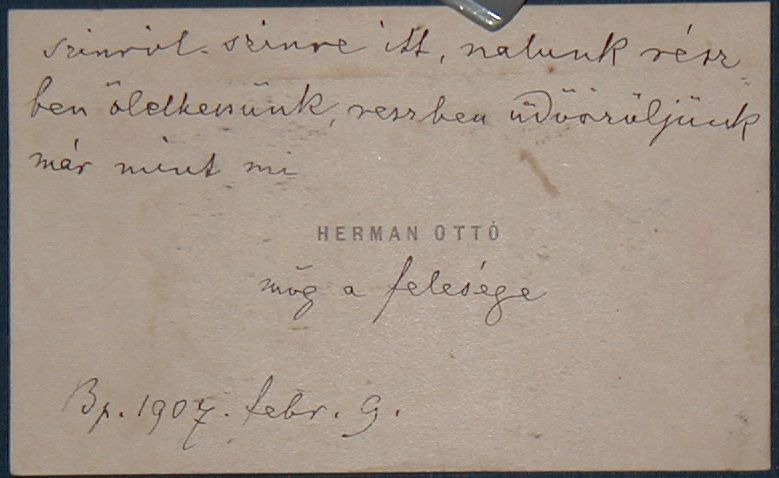 szinrül-szinre itt, nalunk rész-
ben ölelkessünk, reszben üdvözüljünk
már mint mi
HERMAN OTTÓ
mög a felesége
Bp. 1907. febr. 9.